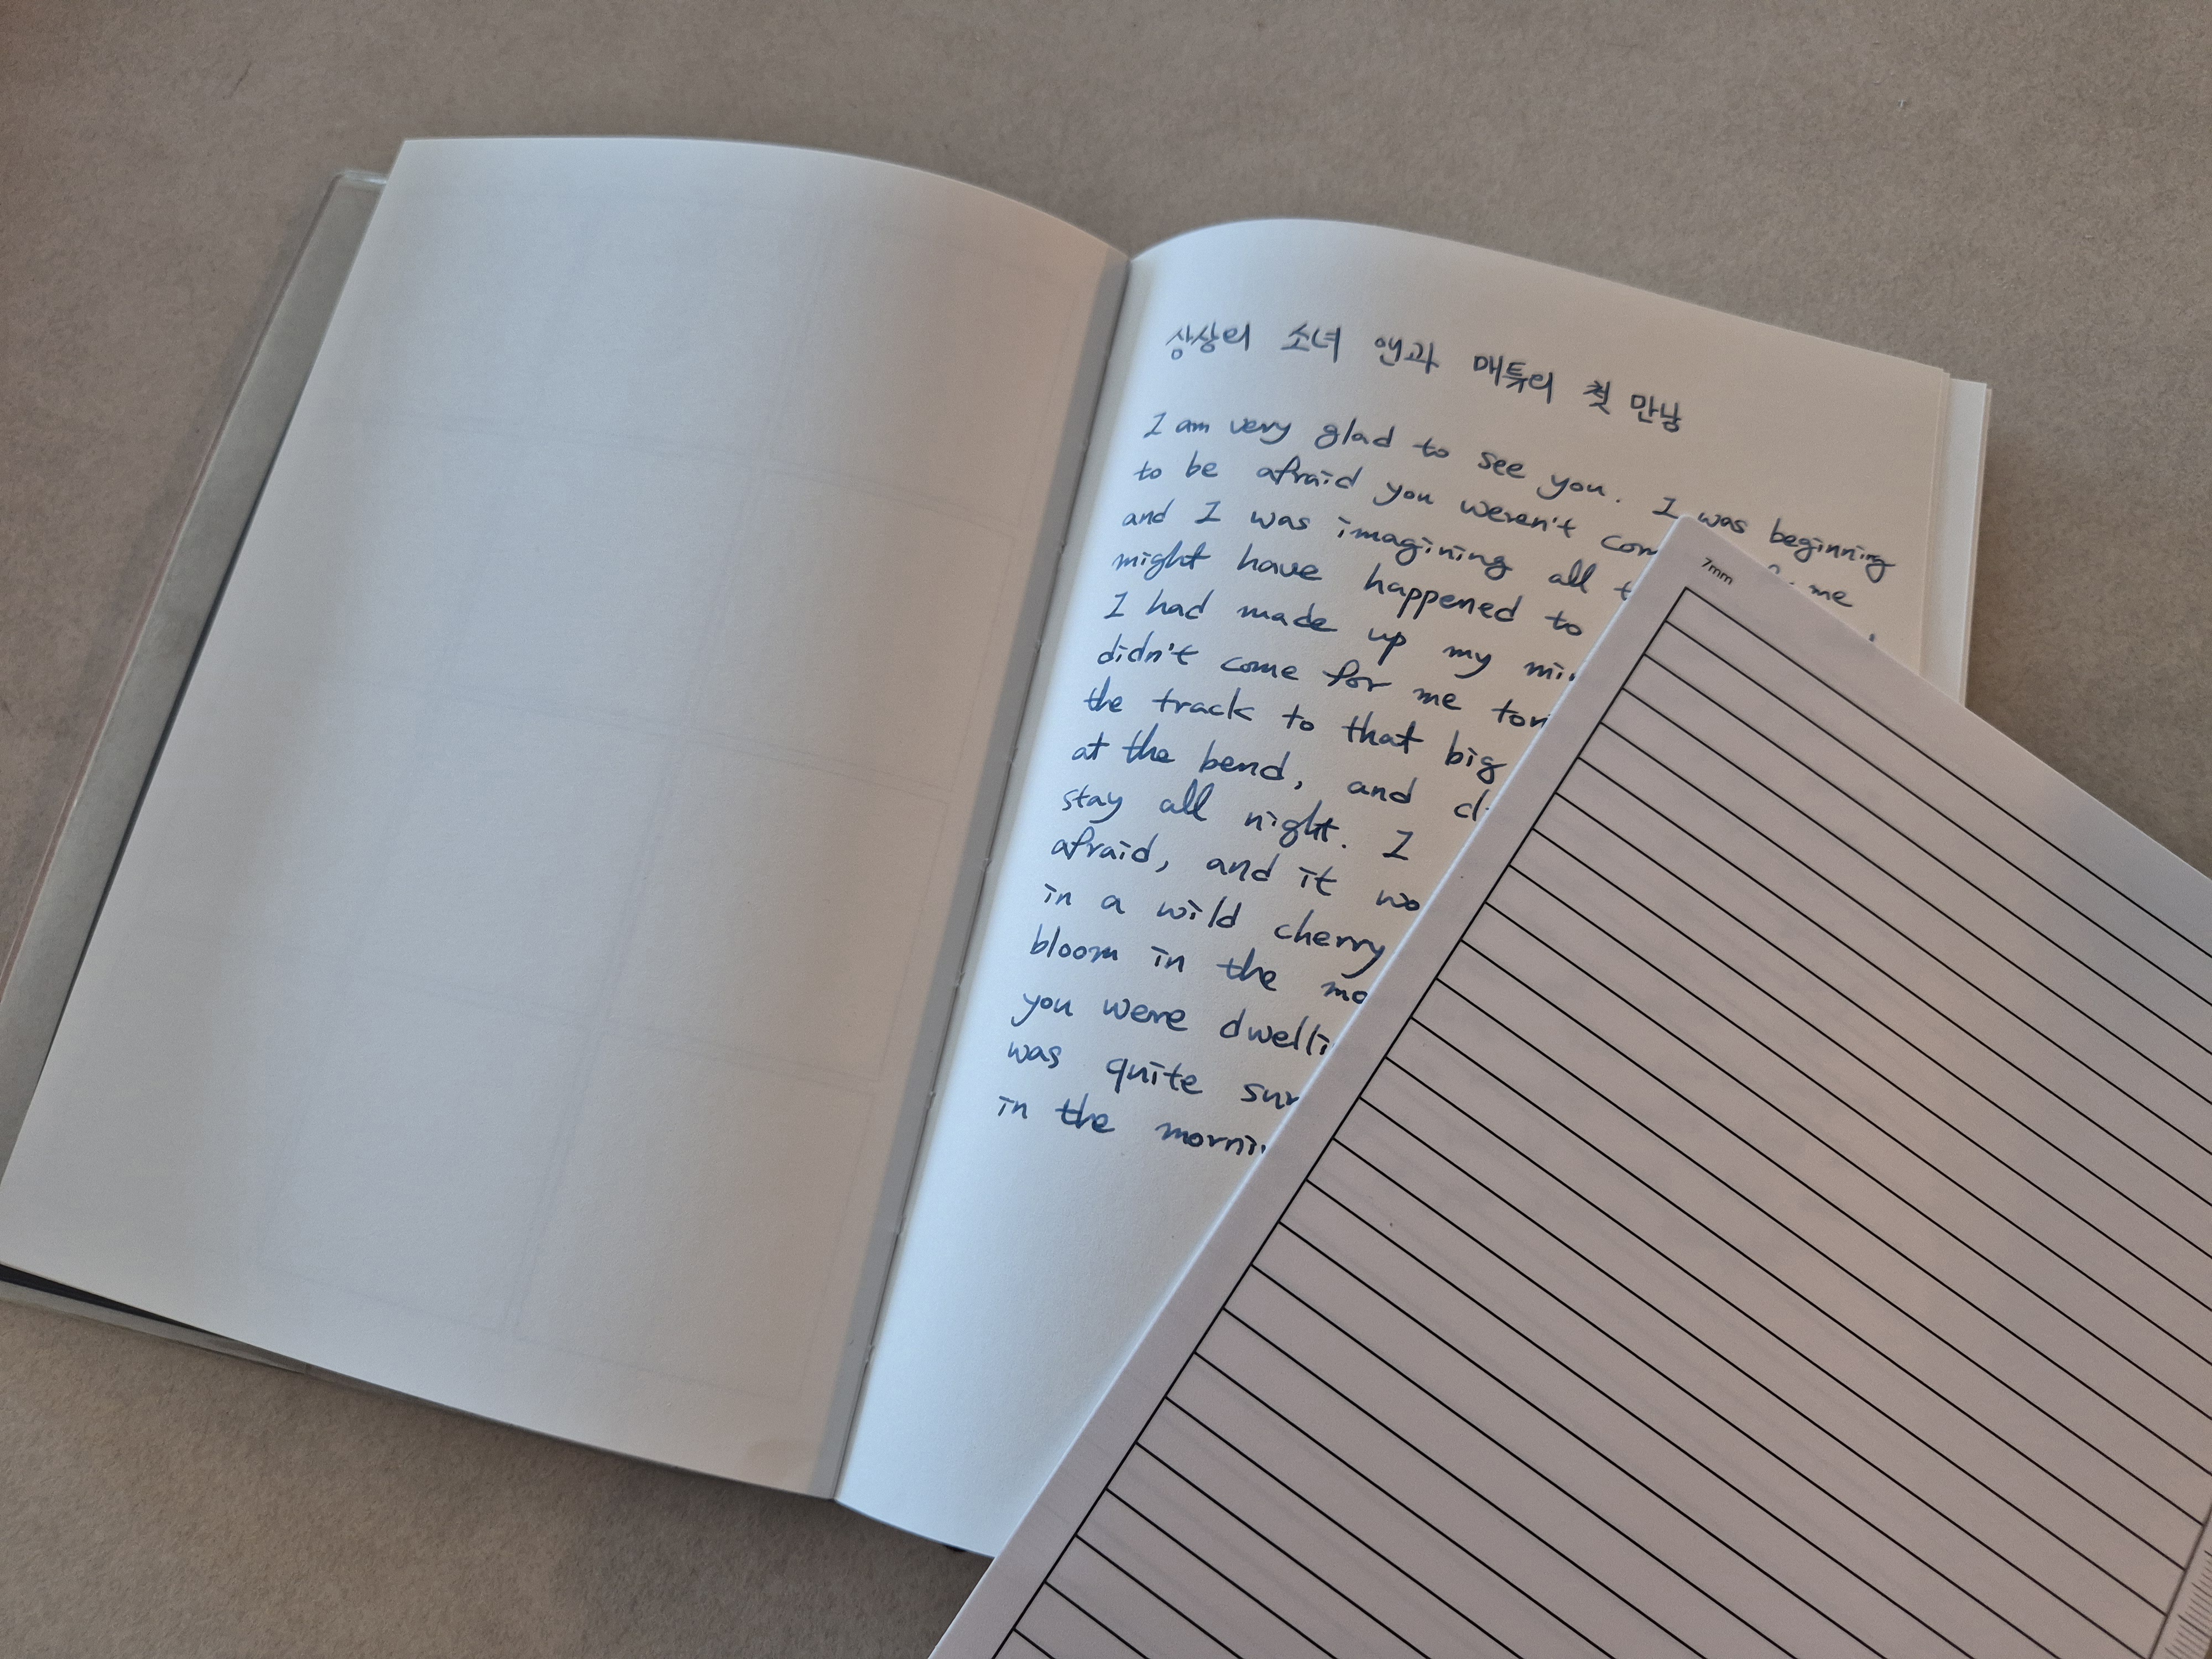 상상의 소녀 앤과 매튜의 첫 만남
I am very glad to see you. I was beginning
to be afraid you weren't me
and I was imagining all
might have happened to
I had made up my
didn't come for me
the track to that big
at the bend, and
stay all night. I
afraid, and it
in a wild cherry
bloom in the
you were
was quite
in the
7mm